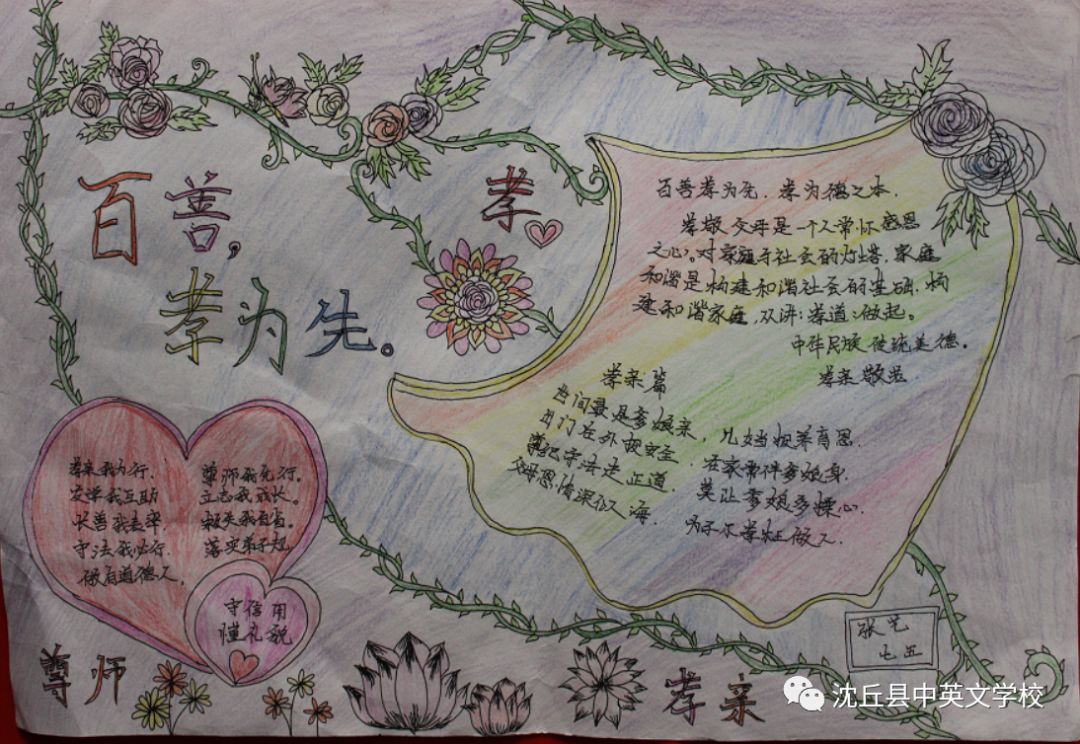 百善,
孝为先。
孝
百善孝为先，孝为德之本。
孝敬父母是一个人常怀感恩
之心。对家庭与社会的灯塔，家庭
和谐是构建和谐社会的基础，构
建和谐家庭，从讲孝道做起。
中华民族传统美德。
孝亲敬
孝亲篇
世间最是爹娘亲，儿女当报养育恩。
出门在外报安全，在家常伴爹娘身。
遵纪守法走正道，莫让爹娘多操心。
父母恩情深似海，为子不孝枉做人。
孝亲我为行，
友学我互助
长善我去
守法我必行，
做有道德人，
尊师我先行。
立志我成长。
我自省。
落实弟子规
守信用
懂礼貌
尊师
孝亲
张艺
七五
沈丘县中英文学校